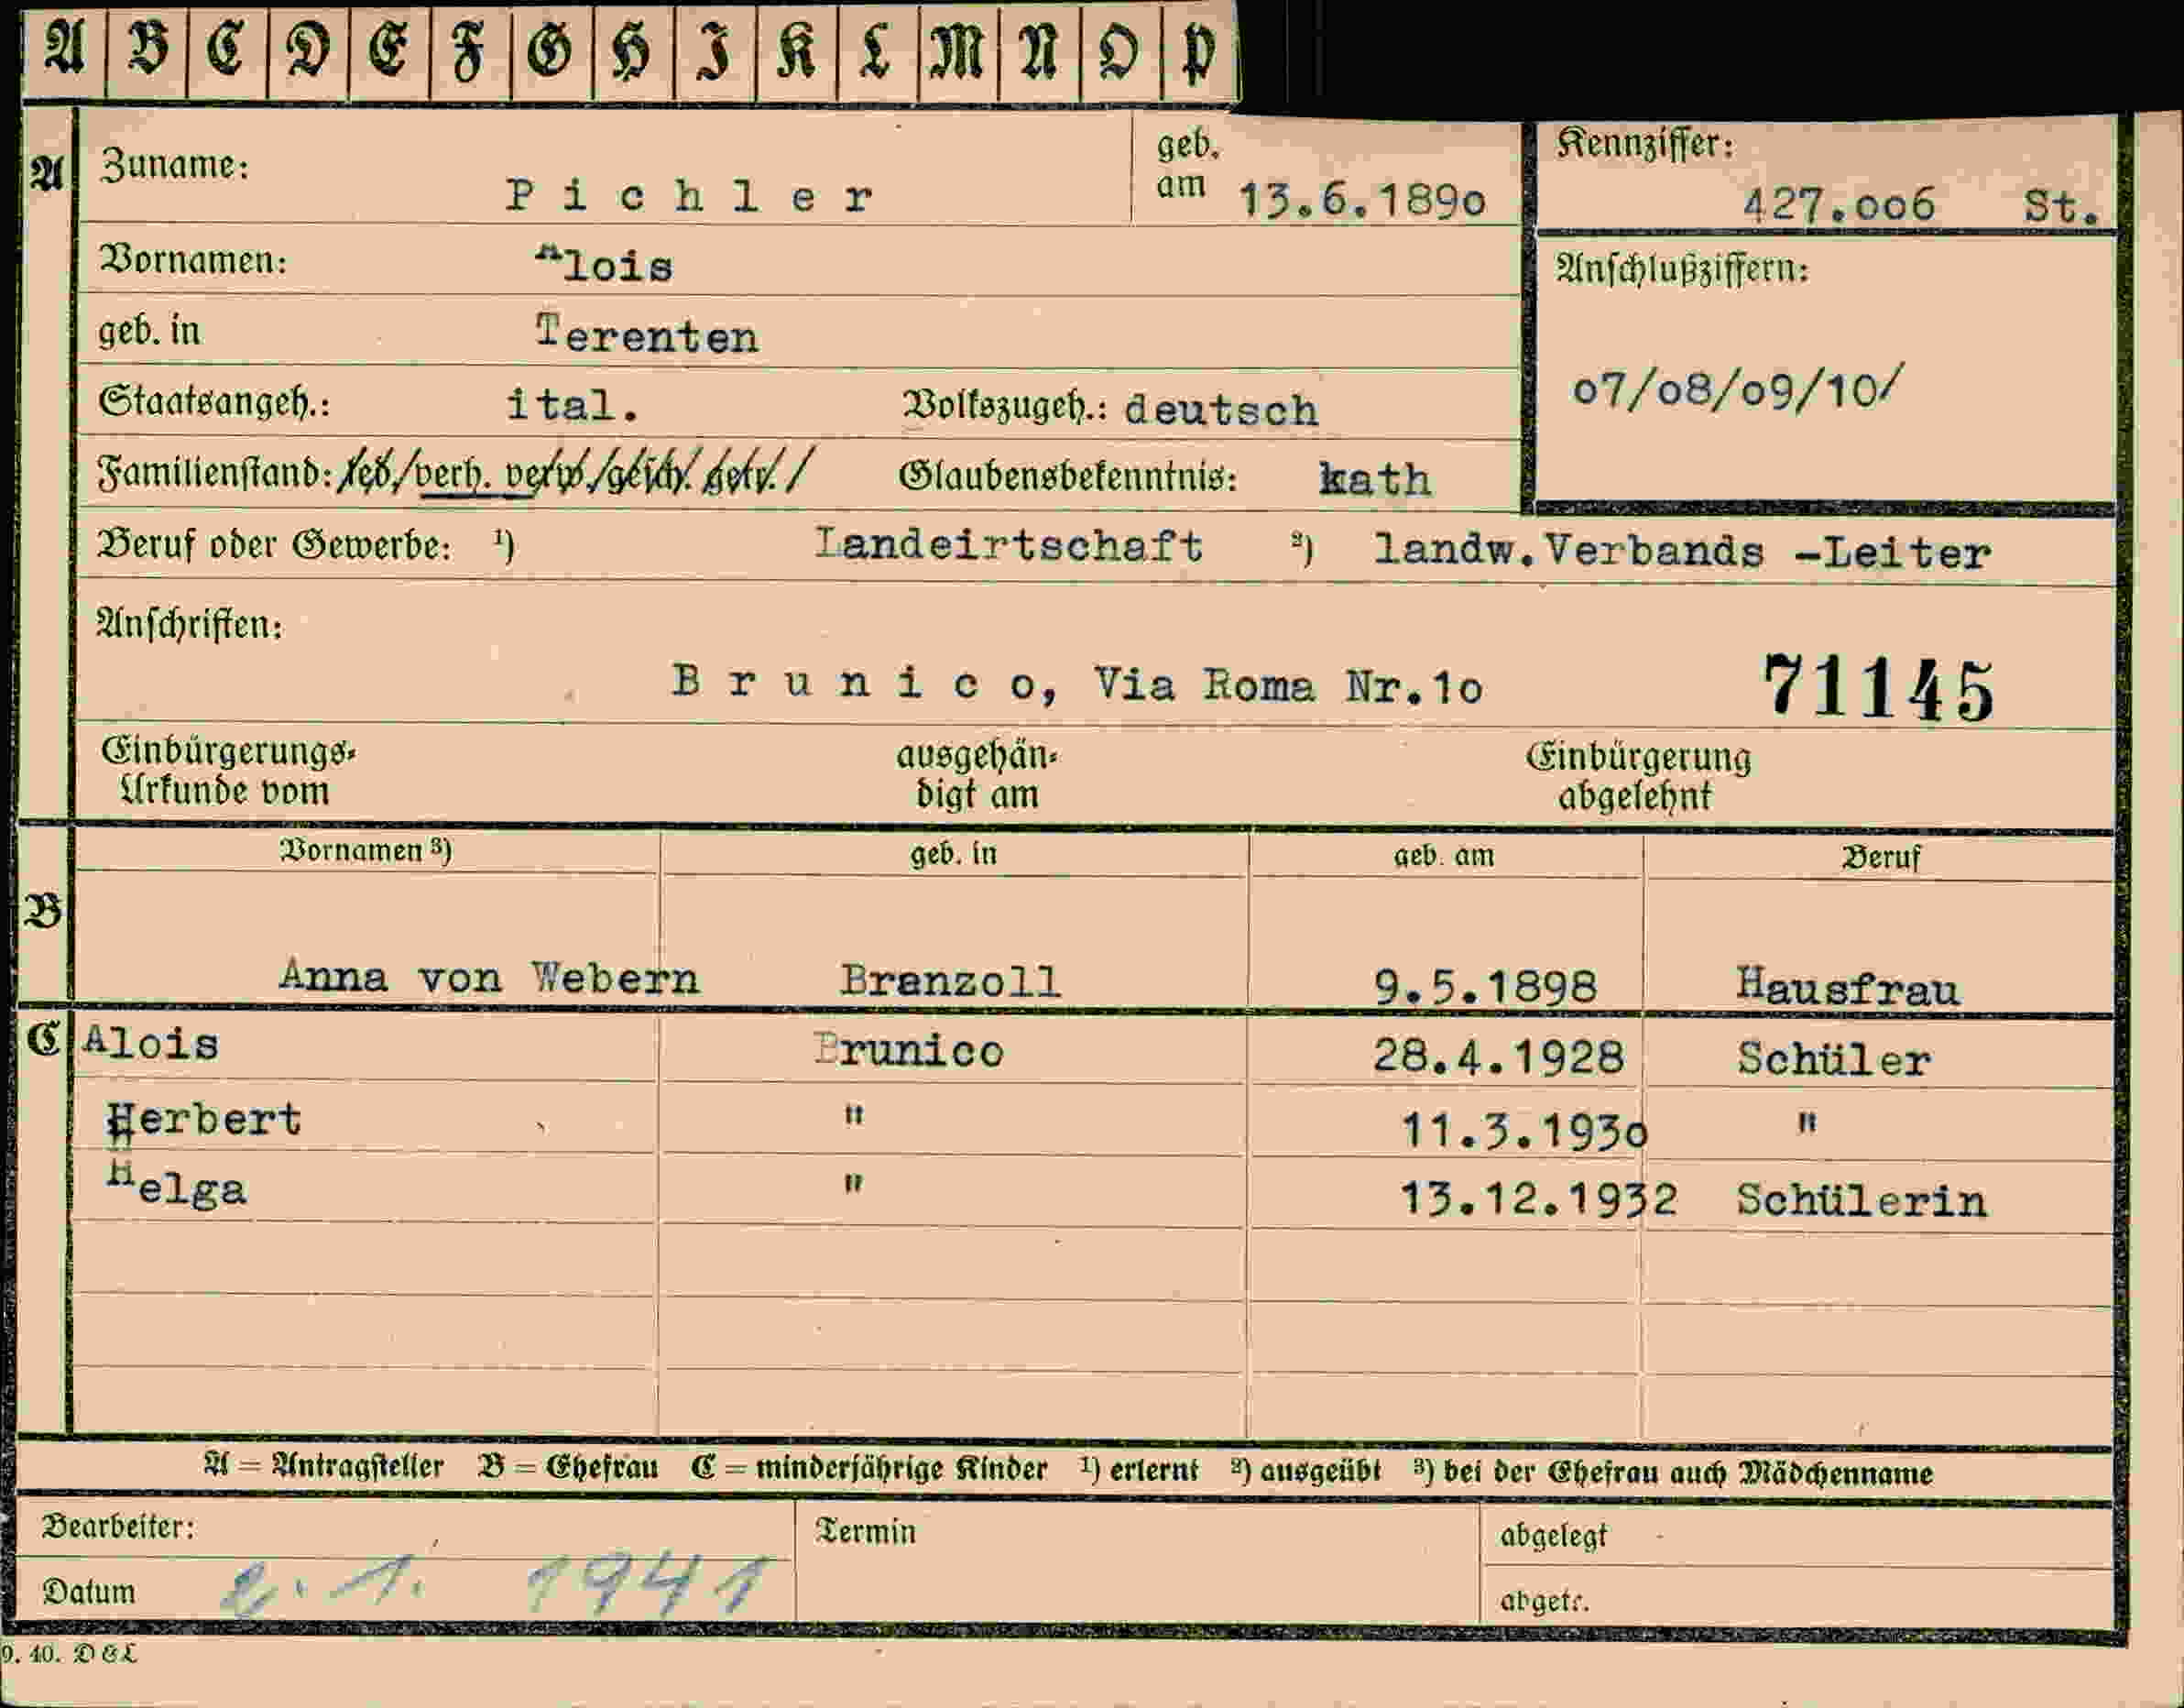 A B C D E F G H I K L M N O P
A Zuname: Pichler geb. am 13.6.1890 Kennziffer: 427.006 St.
Vornamen: Alois Anschlußziffern:
geb. in Terenten
07/08/09/10/
Staatsangeh.: ital. Volkszugeh.: deutsch
Familienstand: led/verh. verw/gesch. getr./ Glaubensbekenntnis: kath
Beruf oder Gewerbe: 1) Landeirtschaft 2) landw.Verbands -Leiter
Anschriften:
Brunico, Via Roma Nr.10 71145
Einbürgerungs- ausgehän- Einbürgerung
Urkunde vom digt am abgelehnt
Vornamen 3) geb. in geb. am Beruf
B
Anna von Webern Branzoll 9.5.1898 Hausfrau
C Alois Brunico 28.4.1928 Schüler
Herbert " 11.3.1930 "
Helga " 13.12.1932 Schülerin
A = Antragsteller B = Ehefrau C = minderjährige Kinder 1) erlernt 2) ausgeübt 3) bei der Ehefrau auch Mädchenname
Bearbeiter: Termin abgelegt
Datum 2. 1. 1941 abgetr.
9. 40. D&L